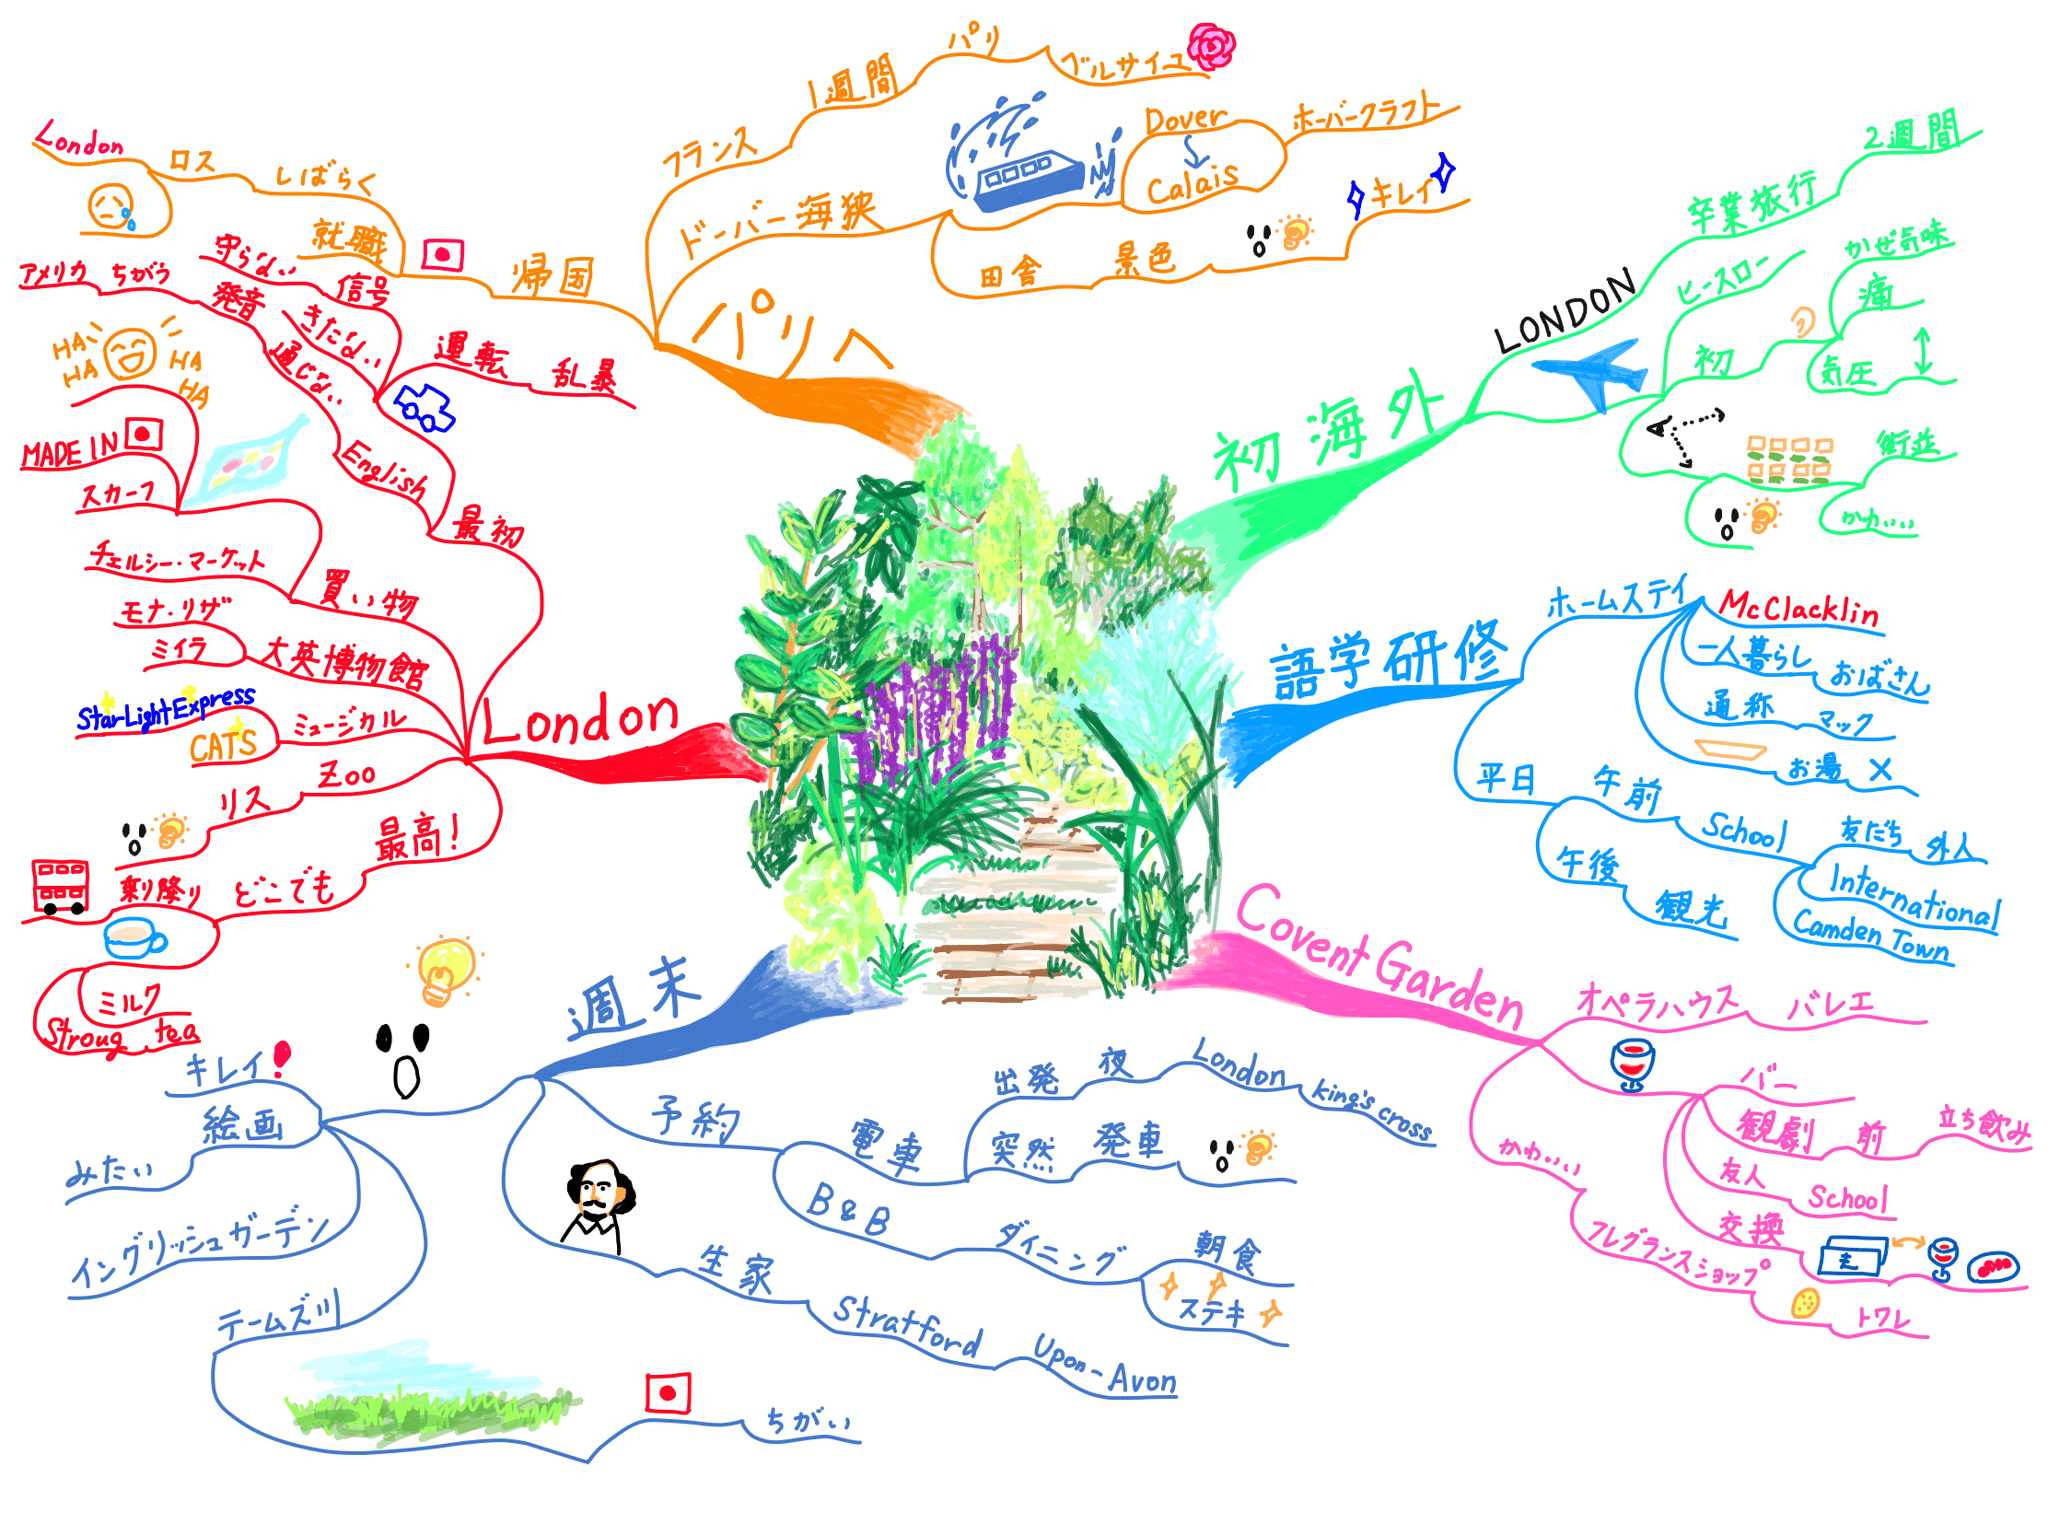 初海外
LONDON
卒業旅行
2週間
ヒースロー
初
かぜ気味
痛
気圧
街並
かわいい
語学研修
ホームステイ
McClacklin
一人暮らし
おばさん
通称
マック
お湯
×
平日
午前
School
友だち
外人
International
Camden Town
午後
観光
Covent Garden
オペラハウス
バレエ
バー
観劇
前
立ち飲み
友人
School
交換
かわいい
フレグランスショップ
トワレ
週末
予約
電車
出発
夜
London
king's cross
突然
発車
B&B
ダイニング
朝食
ステキ
生家
Stratford
Upon-Avon
キレイ!
絵画
みたい
イングリッシュガーデン
テームズ川
ちがい
London
最初
English
通じない
発音
ちがう
アメリカ
運転
乱暴
きたない
信号
守らない
買い物
チェルシー・マーケット
スカーフ
MADE IN
HA
HA
HA
HA
大英博物館
モナ・リザ
ミイラ
ミュージカル
StarLightExpress
CATS
Zoo
リス
最高!
どこでも
乗り降り
ミルク
Stroug tea
パリへ
フランス
1週間
パリ
ベルサイユ
ドーバー海狭
Dover
Calais
ホーバークラフト
田舎
景色
キレイ
帰国
就職
しばらく
ロス
London